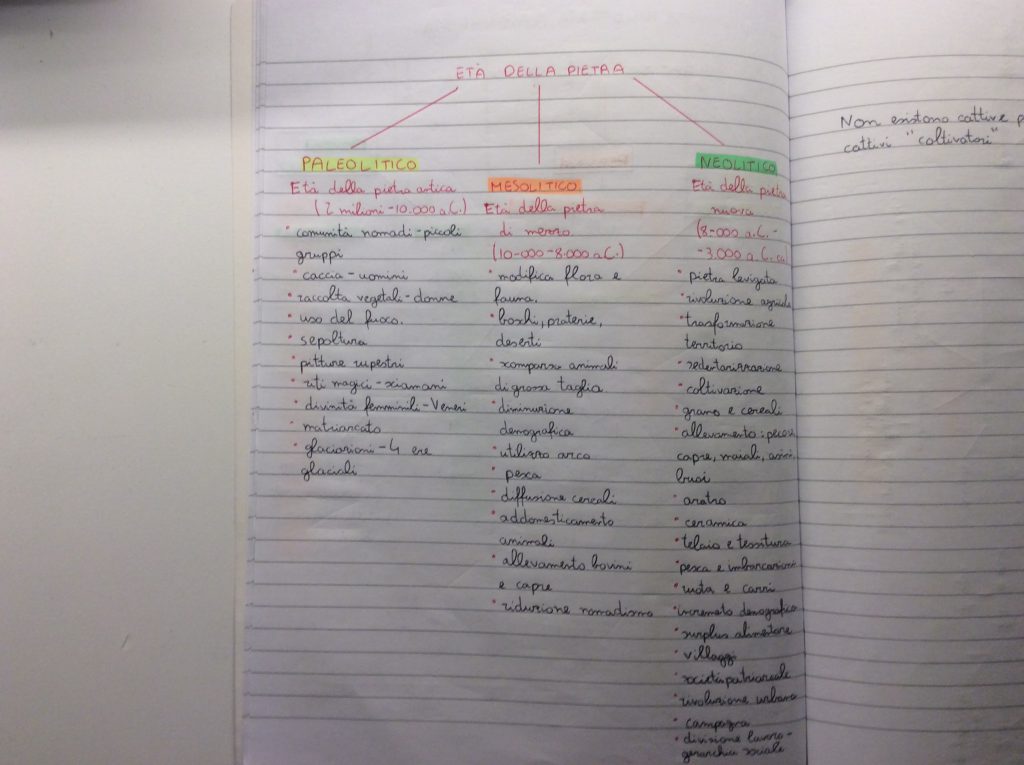 ETÀ DELLA PIETRA
PALEOLITICO
Età della pietra antica
(2 milioni-10.000 a.C.)
• comunità nomadi-piccoli
gruppi
• caccia-uomini
• raccolta vegetali-donne
• uso del fuoco.
• sepoltura
• pitture rupestri
• riti magici-sciamani
• divinità femminili-Veneri
matriarcato
• glaciazioni-4 ere
glaciali
MESOLITICO
Età della pietra
di mezzo
(10-000-8.000 a.C.)
• modifica flora e
fauna.
• boschi, praterie,
deserti
• scomparsa animali
di grossa taglia
• diminuzione
demografica
• utilizzo arco
• pesca
• diffusione cereali
• addomesticamento
animali
• allevamento bovini
e capre
• riduzione nomadismo
NEOLITICO
Età della pietra
nuova
(8-000 a.C.-
-3.000 a.C.
• pietra levigata
• rivoluzione agricola
• trasformazione
territorio
• sedentarizzazione
• coltivazione
• grano e cereali
• allevamento: pecore
capre, maiali, asini
buoi
• aratro
• ceramica
• telaio e tessitura
• pesca e imbarcazioni
• ruota e carri
• incremento demografico
• surplus alimentare
• villaggi
• società patriarcale
• rivoluzione urbana
• campagna
• divisione lavoro-
gerarchia sociale
Non esistono cattive
cattivi "coltivatori"